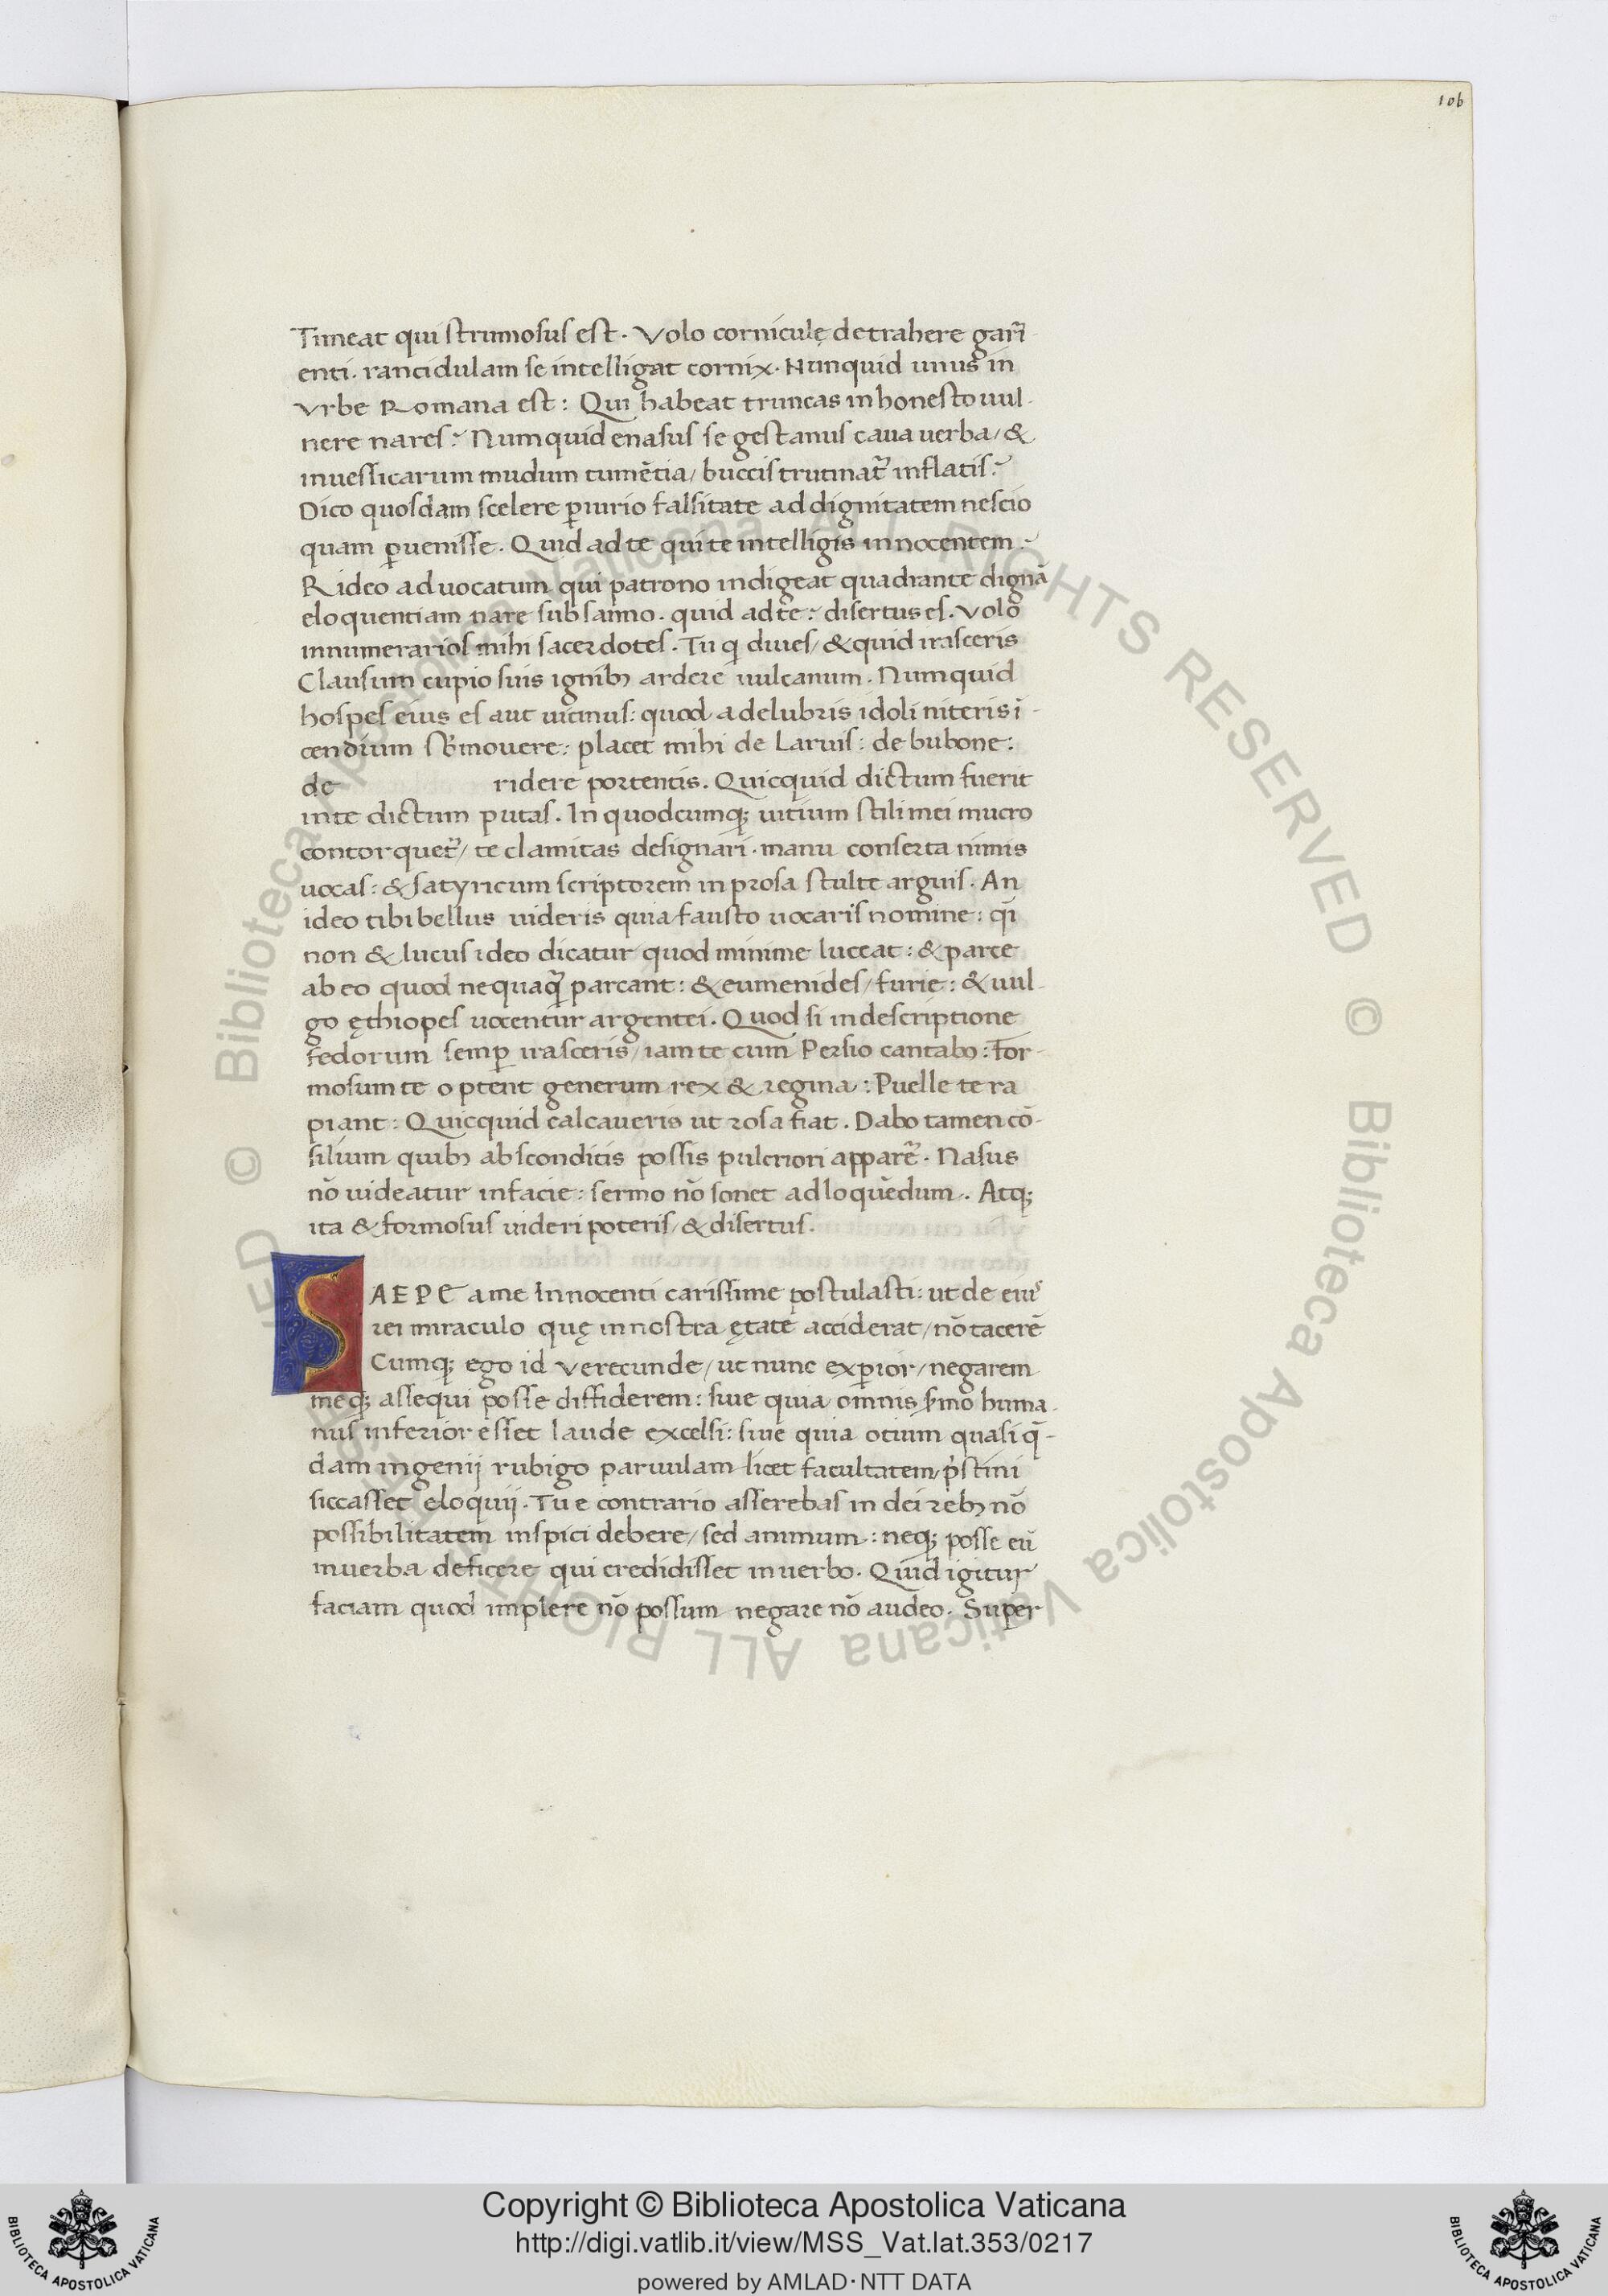 106
Timeat qui strumosus est. Volo corniculę detrahere garri-
enti. rancidulam se intelligat cornix. Nunquid unus in
Vrbe Romana est: Qui habeat truncas inhonesto uul-
nere nares? Numquid enasus segestanus caua uerba/ &
inuessicarum mudum tumētia/ buccis trutinat᷑ inflatis?
Dico quosdam scelere ꝑiurio falsitate ad dignitatem nescio
quam ꝑuenisse. Quid ad te qui te intelligis innocentem?
Rideo aduocatum qui patrono indigeat quadrante dignā
eloquentiam nare subsanno. quid ad te? disertus es. Volo
innumerarios mihi sacerdotes. Tu q diues/ & quid irasceris
Clausum cupio suis ignibꝫ ardere uulcanum. Numquid
hospes eius es aut uicinus: quod a delubris idoli niteris ī-
cendium sb̄mouere: placet mihi de Laruis: de bubone:
de ridere portentis. Quicquid dictum fuerit
inte dictum putas. In quodcumqꝫ uitium stili mei mucro
contorquet᷑/ te clamitas designari. manu conserta nimis
uocas: & satyricum scriptorem in prosa stulte arguis. An
ideo tibi bellus uideris quia fausto uocaris nomine: qī
non & lucus ideo dicatur quod minime luceat: & parce
ab eo quod nequaq̄ parcant: & eumenides/ furie: & uul-
go ęthiopes uocentur argentei. Quod si indescriptione
fedorum semꝑ irasceris/ iam te cum Persio cantabo: For-
mosum te optent generum rex & regina: Puelle te ra
piant: Quicquid calcaueris ut rosa fiat. Dabo tamen cō-
silium quibꝫ absconditis possis pulcriori apparē. Nasus
nō uideatur infacie: sermo nō sonet ad loquēdum. Atqꝫ
ita & formosus uideri poteris/ & disertus.
SAEPE a me Innocenti carissime postulasti: ut de eius
rei miraculo quę in nostra ętate acciderat/ nō tacerē
Cumqꝫ ego id verecunde/ ut nunc exꝑior/ negarem
meqꝫ assequi posse diffiderem: siue quia omnis s̄mo huma-
nus inferior esset laude excelsi: siue quia otium quasi q̄-
dam ingenij rubigo paruulam licet facultatem/ p̄stini
siccasset eloquij. Tu e contrario asserebas in dei rebꝫ nō
possibilitatem inspici debere/ sed animum: neqꝫ posse eū
inuerba deficere qui credidisset in uerbo. Quid igitur
faciam quod implere nō possum negare nō audeo. Super
© Biblioteca Apostolica Vaticana ALL RIGHTS RESERVED © Biblioteca Apostolica Vaticana ALL RIGHTS RESERVED
Copyright © Biblioteca Apostolica Vaticana
http://digi.vatlib.it/view/MSS_Vat.lat.353/0217
powered by AMLAD·NTT DATA
BIBLIOTECA APOSTOLICA VATICANA
BIBLIOTECA APOSTOLICA VATICANA